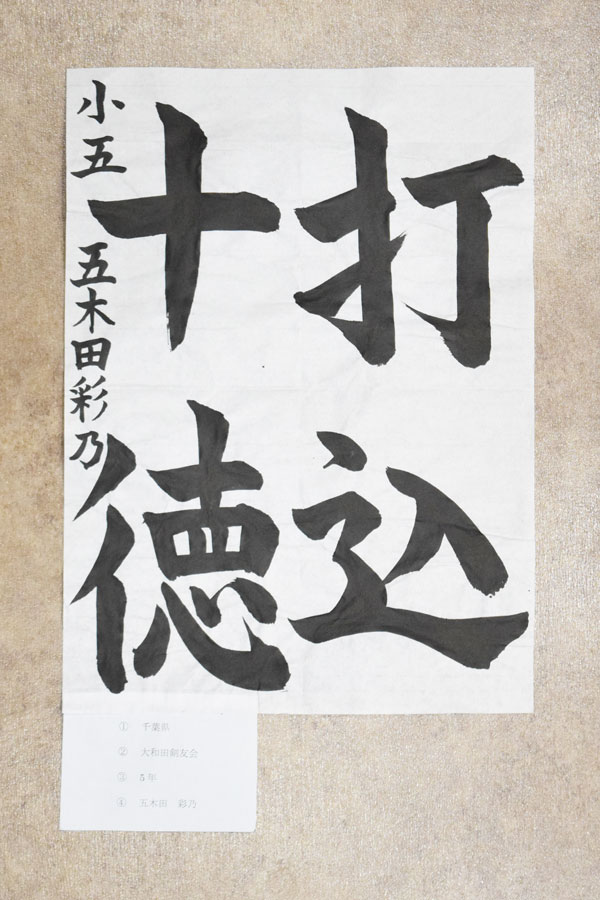 打込
十徳
小五 五木田彩乃
① 千葉県
② 大和田剣友会
③ 5年
④ 五木田 彩乃